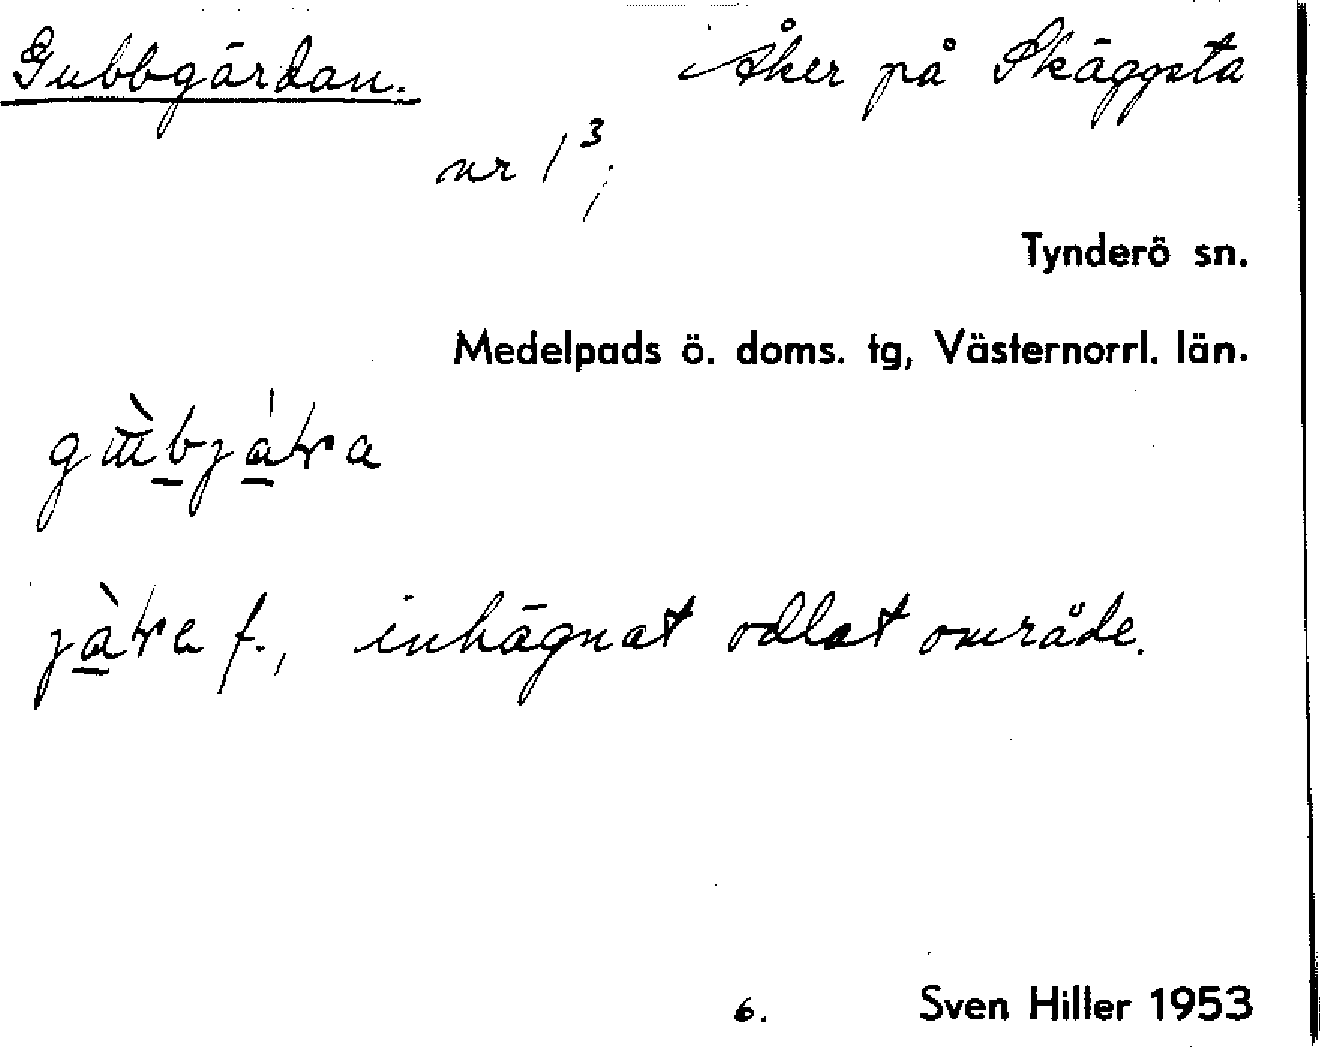 Gubbgärdan. Åker på Skäggsta
nr 1³;
Tynderö sn.
Medelpads ö. doms. tg, Västernorrl. län.
f., inhägnat odlat område.
6. Sven Hiller 1953